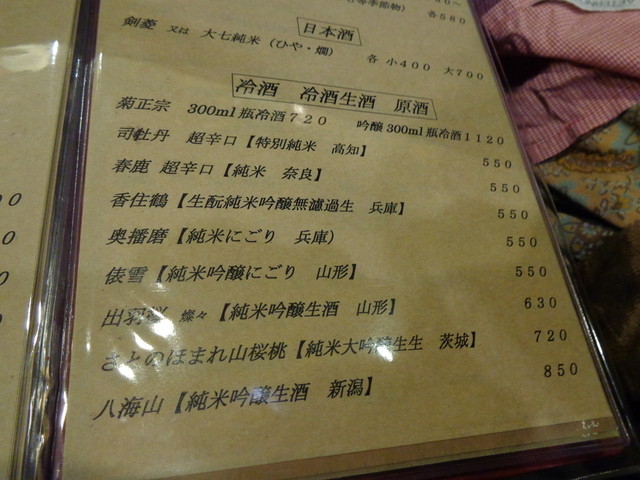 各580
日本酒
剣菱 又は 大七純米(ひや・燗) 各 小400 大700
冷酒 冷酒生酒 原酒
菊正宗 300ml瓶冷酒720 吟醸300ml瓶冷酒1120
司牡丹 超辛口【特別純米 高知】 550
春鹿 超辛口【純米 奈良】 550
香住鶴【生酛純米吟醸無濾過生 兵庫】 550
奥播磨【純米にごり 兵庫) 550
俵雪【純米吟醸にごり 山形】 550
出羽桜 燦々【純米吟醸生酒 山形】 630
さとのほまれ山桜桃【純米大吟醸生生 茨城】 720
八海山【純米吟醸生酒 新潟】 850